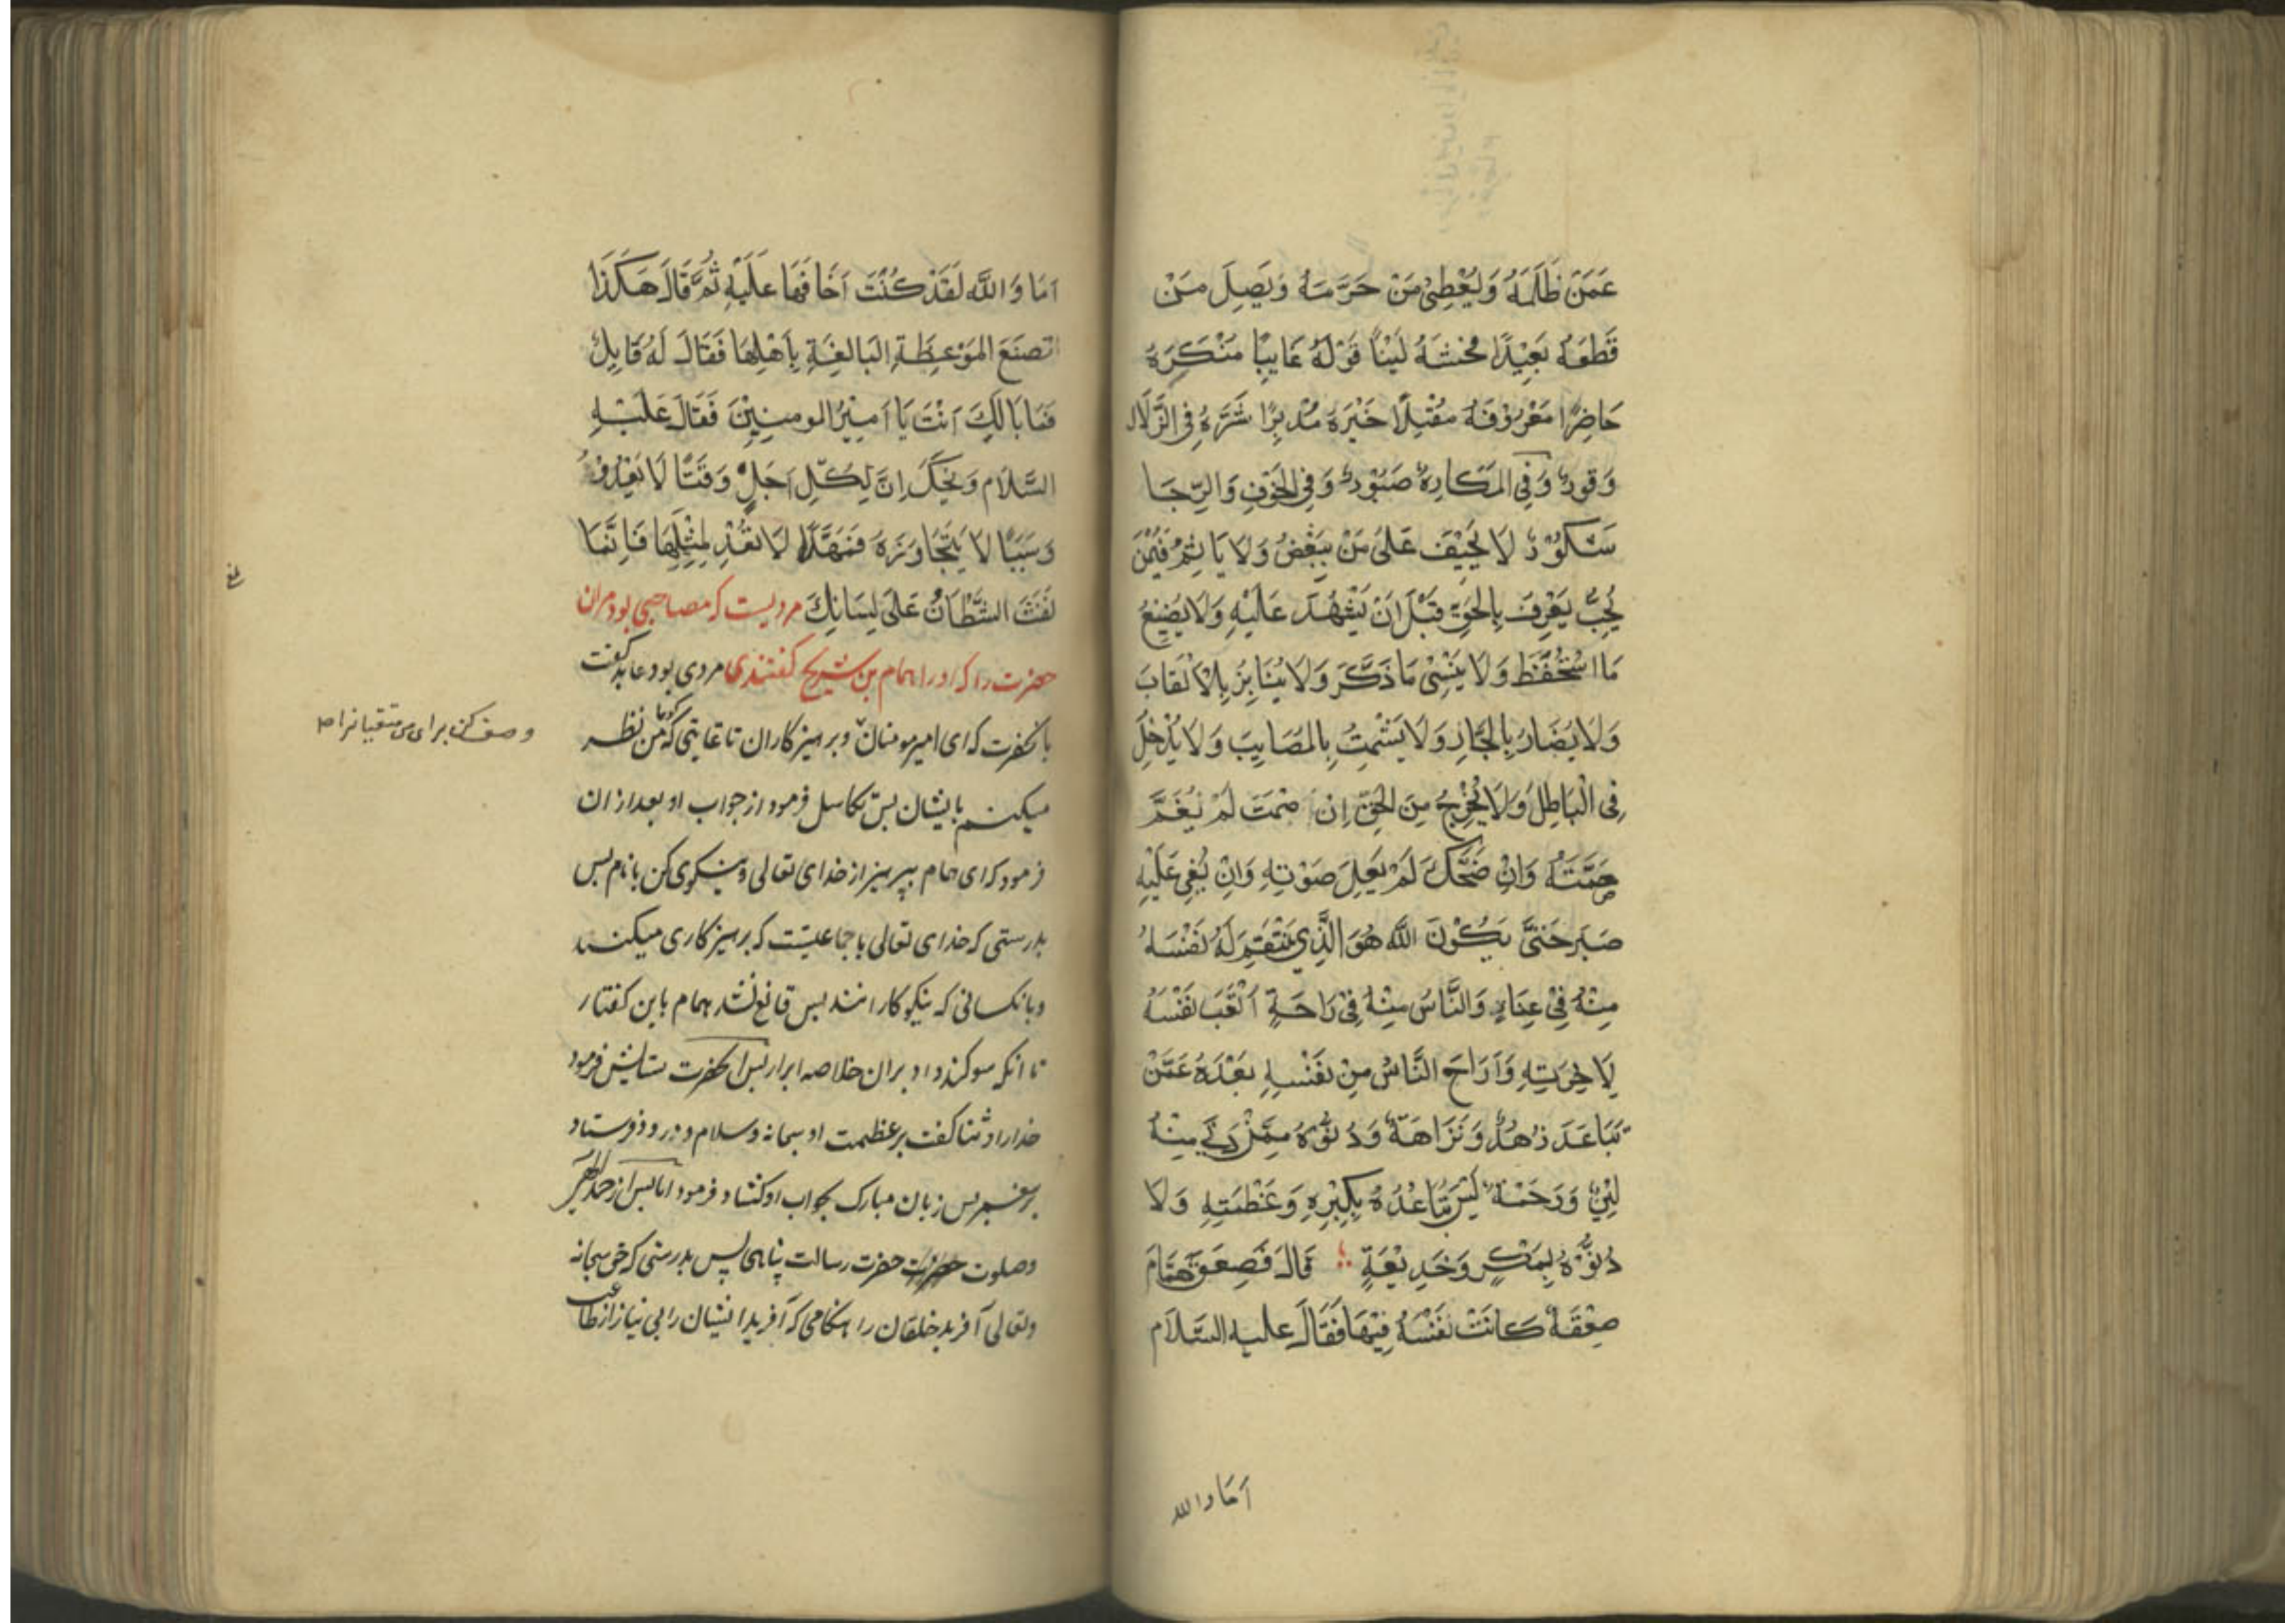 عَمَّنْ ظَلَمَهُ وَيُعْطِىْ مَنْ حَرَّمَهُ وَيَصِلَ مَنْ
قَطَعَهُ بَعِيْدًا فُحْشَهُ لَيْنًا قَوْلَهُ غَايِبًا مُنْكَرَهُ
حَاضِرًا مَعْرُوْفَهُ مُقْبِلًا خَيْرَهُ مُدْبِرًا شَرَّهُ فِى الزَّلَازِل
وَقورٌ وَفِى المَكَارِهِ صَبُوْرٌ وَفِى الخَوْفِ وَالرِّجَا
شَكُوْرٌ لَا يَحِيْفُ عَلىٰ مَنْ يُبْغِضُ وَلَا يَا ثِمُ فِيْمَنْ
يُحِبُّ يَعْرِفُ بِالحَقِّ قَبْلَ اَنْ يَشْهَدَ عَلَيْهِ وَلَا يُضِيْعُ
مَا اسْتُحْفَظَ وَلَا يَنْسٰى مَا ذَكَّرَ وَلَا يُنَابِزُ بِالْاَلْقَابِ
وَلَا يُضَارُ بِالجَارِ وَلَا يَشْمِتُ بِالمَصَايِبِ وَلَا يَدْخِلُ
فِى الْبَاطِلِ وَلَا يَخْرُجُ مِنَ الحَقِّ اِنْ صَمَتَ لَمْ يُغَمَّ
صَمْتَهُ وَاِنْ ضَحَكَ لَمْ يَعِلَ صَوْتِهِ وَاِنْ بُغِى عَلَيْهِ
صَبَرَ حَتَّى يَكُوْنَ اللّٰه هُوَ الَّذِي يَنْتَقِمَ لَهُ نَفْسَهُ
مِنْهُ فِىْ عِنَاءٍ وَالنَّاسُ مِنْهُ فِىْ رَاحَةٍ اَتْعَبَ نَفْسَهُ
لِاٰخِرَتِهِ وَاَرَاحَ النَّاسُ مِنْ نَفْسِهِ بُعْدَهُ عَمَّنْ
تَبَاعَدَ زُهْدٌ وَنَزَاهَةٌ وَدُنُوُّهُ مِمَّنْ دَنٰى مِنْهُ
لِيْنٌ وَرَحْمَةٌ لَيْسَ تَبَاعُدُهُ بِكِبْرِهِ وَعَظْمَتِهِ وَلَا
دُنُوُّهُ بِمَكْرٍ وَخَدِيْعَةٍ قَالَ فَصَعِقَ هَمَّام
صَعْقَةً كَانَتْ نَفْسُهُ فِيْهَا فَقَالَ عليه السَّلَام
اَمَا والله
اَمَا وَاللّٰه لَقَدْ كُنْتُ اَخَافَهَا عَلَيْهِ ثُمَّ قَالَ هَكَذَا
تصنَعَ المَوْعِظَةِ البَالِغَةِ بِاَهْلِهَا فَقَالَ لَهُ قَايِل
فَمَا بَالُكَ اَنْتَ يَا اَمِيْرُ المومنِيْنَ فَقَالَ عَلَيْهِ
السَّلَام وَيْحَكَ اِنَّ لِكُلِّ اَجَلٍ وَقْتًا لَا يَعْدُوْهُ
وَسَبَبًا لَا يَتَجَاوَزَهُ فَمَهْلًا لَا تَعُدْ لِمِثْلِهَا فَاِنَّمَا
نَفَثَ الشَّيْطَانُ عَلَى لِسَانِكَ مرديست كه مصاحبى بود مران
حضرت را كه او را همام بن شريح كفتندى مردى بود عابد كفت
بانحضرت كه اى امير مومنان و پرهيزكاران تا غايتى كه كويا من نظر
وصف كن براى من متقيانرا صح
ميكنم بايشان پس تكاسل فرمود از جواب او بعد از ان
فرمود كه اى همام بپرهيز از خداى تعالى و نيكوى كن بانام پس
بدرستى كه خداى تعالى با جماعتيست كه پرهيزكارى ميكنند
و بانكسانى كه نيكو كارانند پس قانع نشد همام باين كفتار
تا انكه سوكند داد بران خلاصه ابرار پس انحضرت ستايش فرمود
خدا را و ثنا كفت بر عظمت او سبحانه و سلام و درود فرستاد
بر پيغمبر پس زبان مبارك بجواب او كشاد و فرمود اما پس از حمد
و صلوت حضرت رسالت پناهى پس بدرستى كه حق سبحانه
و تعالى آفريد خلقان را هنكامى كه آفريد ايشان را بى نياز از طاعت
بلغ